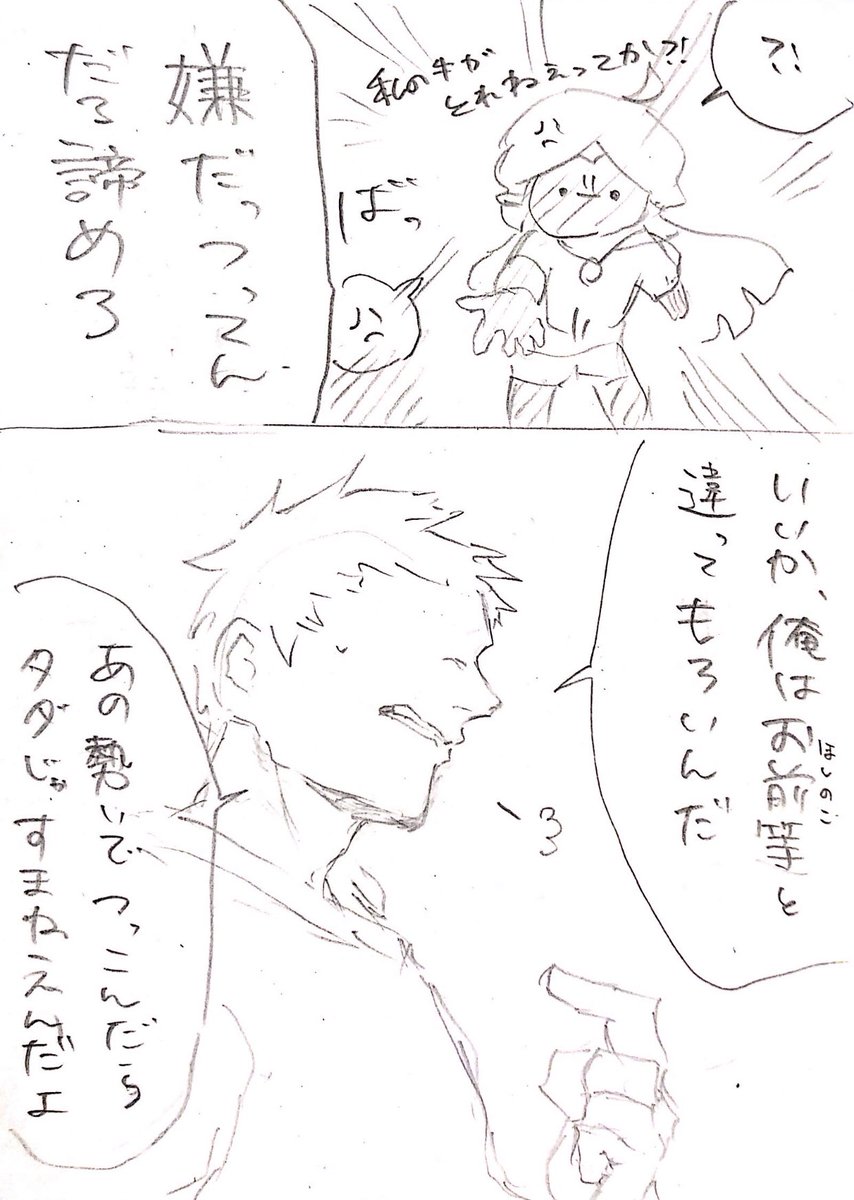 ?!
私の手が
とれねえってか?!
ばっ
嫌だっつってん
だろ諦めろ
いいか、俺はお前等と
ほしのこ
違ってもろいんだ
あの勢いでつっこんだら
タダじゃすまねえんだよ